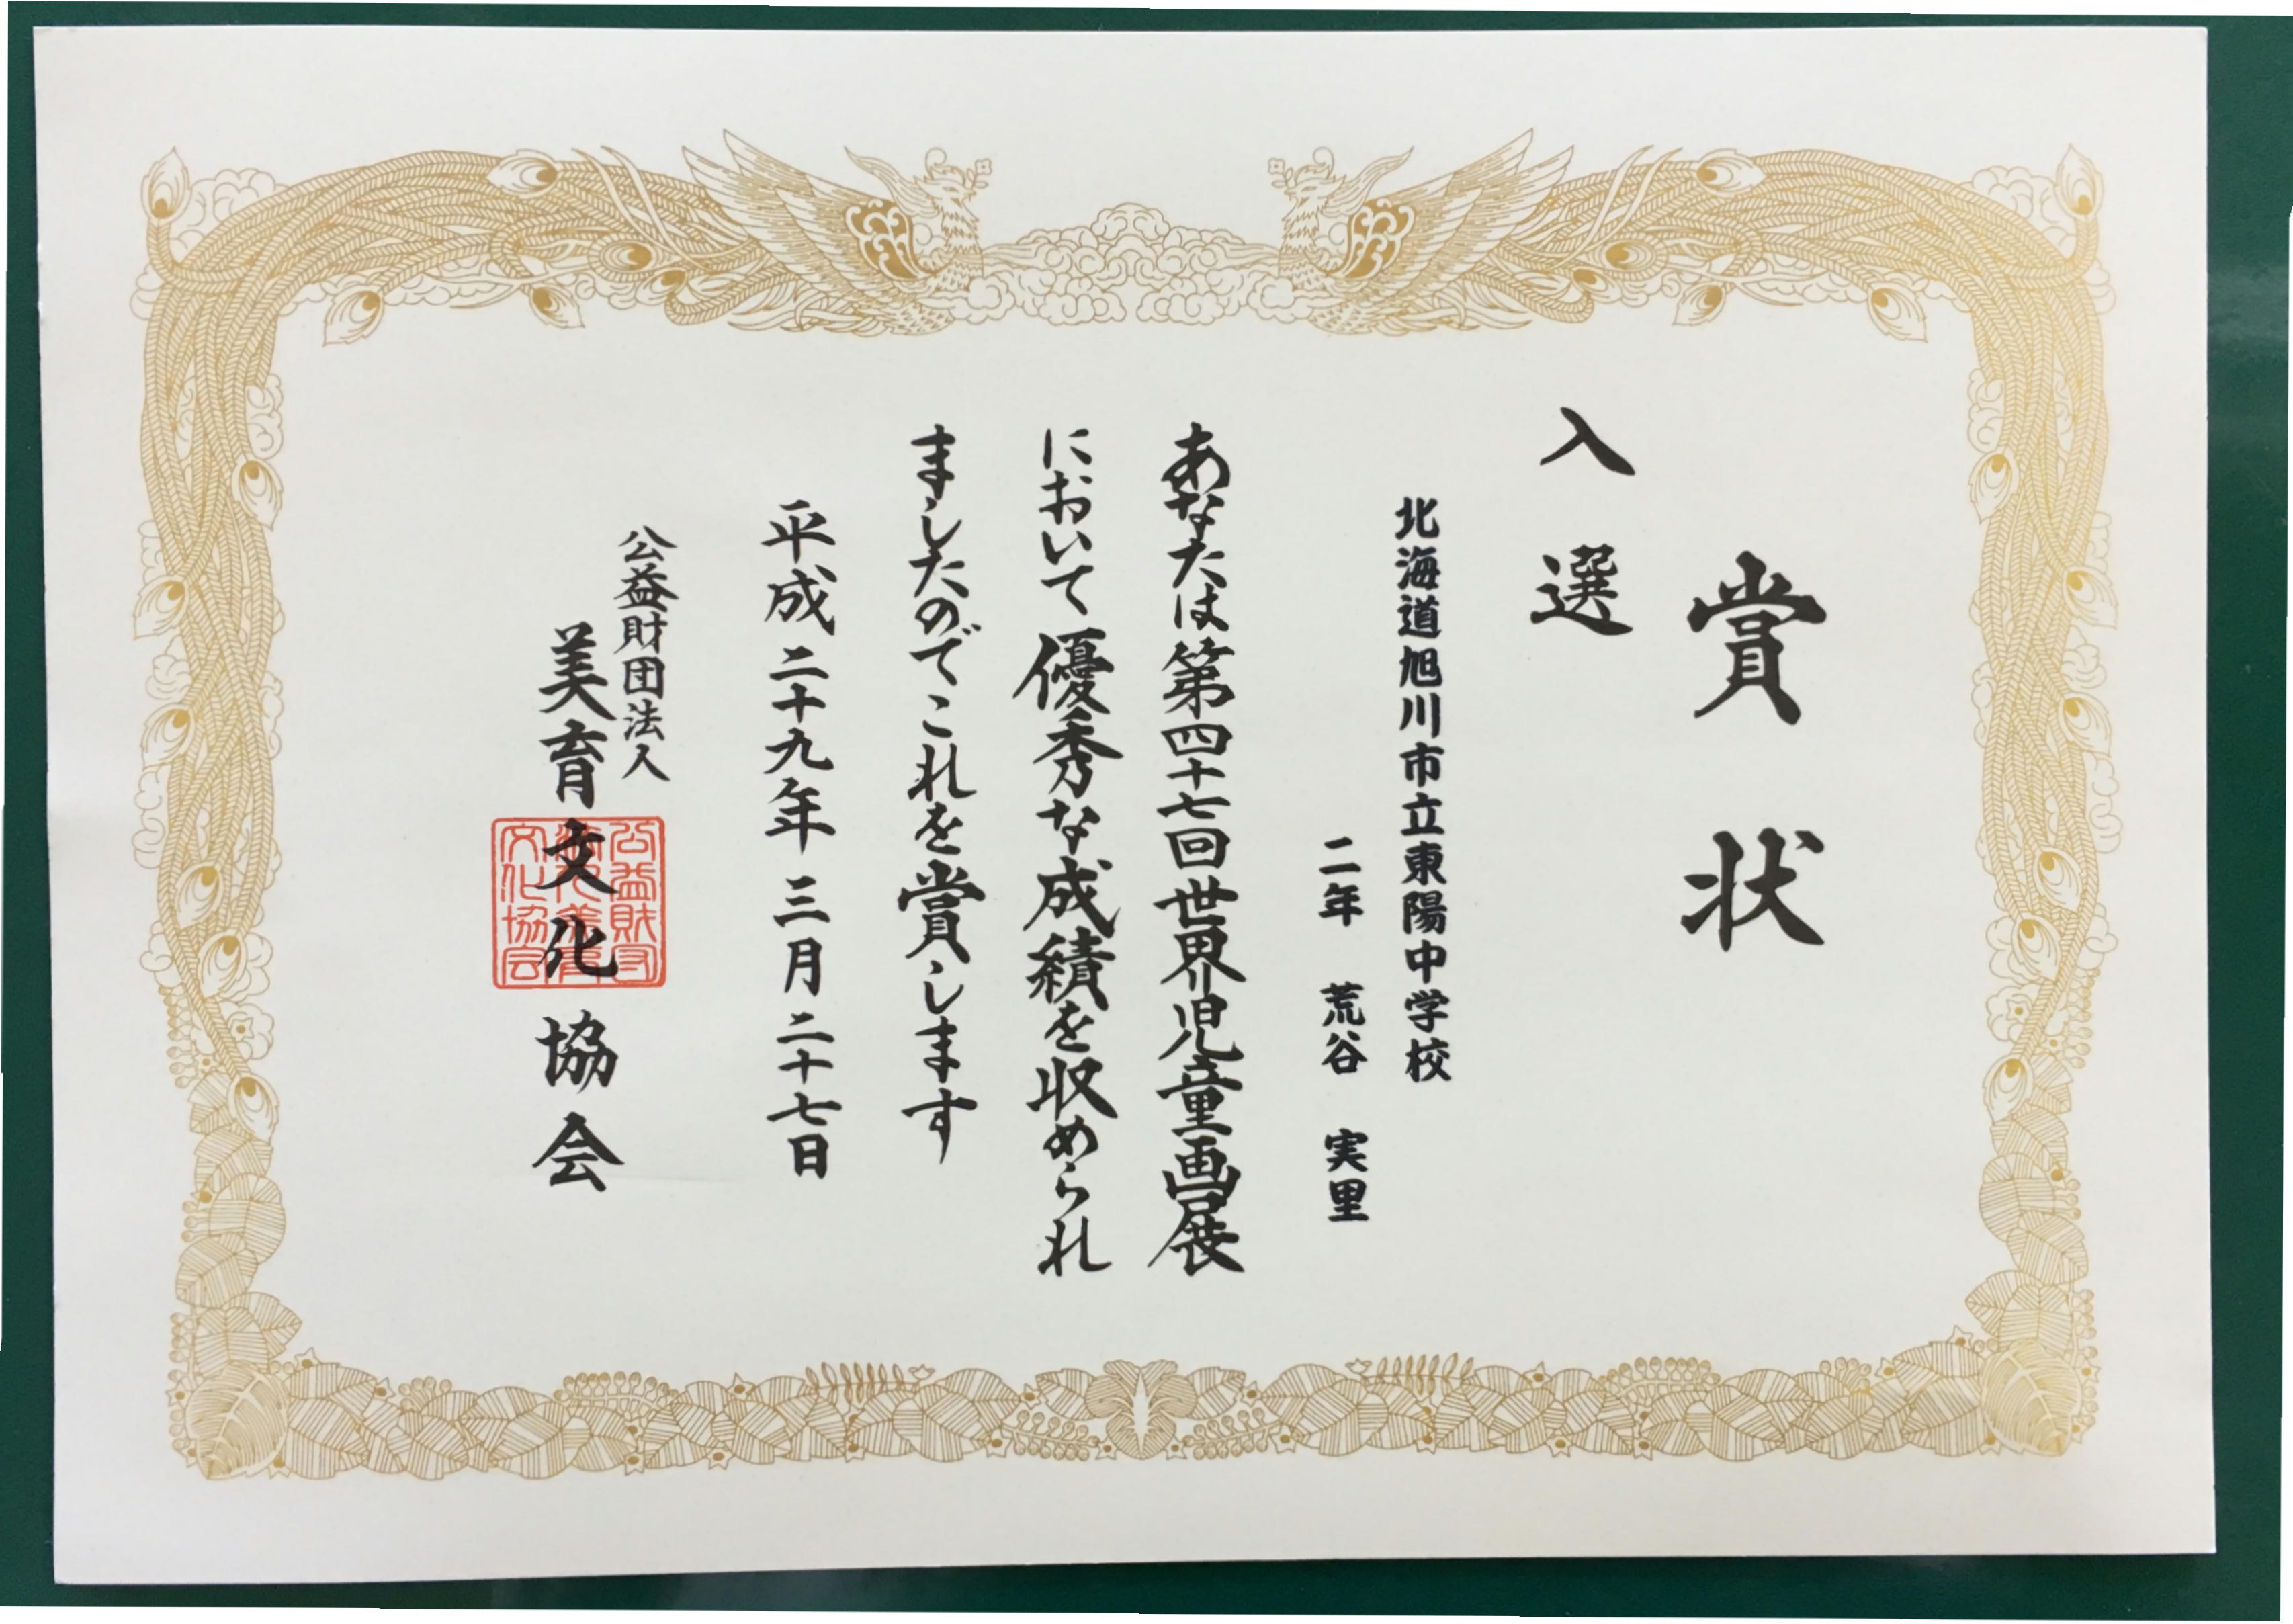 賞状
入選
北海道旭川市立東陽中学校
二年 荒谷 実里
あなたは第四十七回世界児童画展
において優秀な成績を収められ
ましたのでこれを賞します
平成二十九年三月二十七日
公益財団法人
美育文化協会
公益財団
法人美育
文化協会